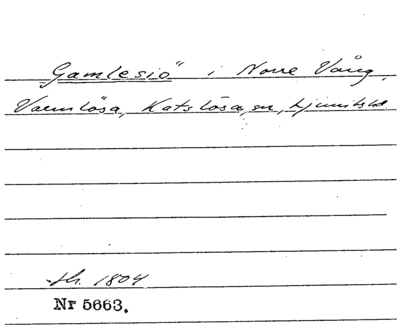 „Gamlesio" i Norre Vång,
Varmlösa, Katslösa sn, Ljunits hd
sk. 1804
Nr 5663.